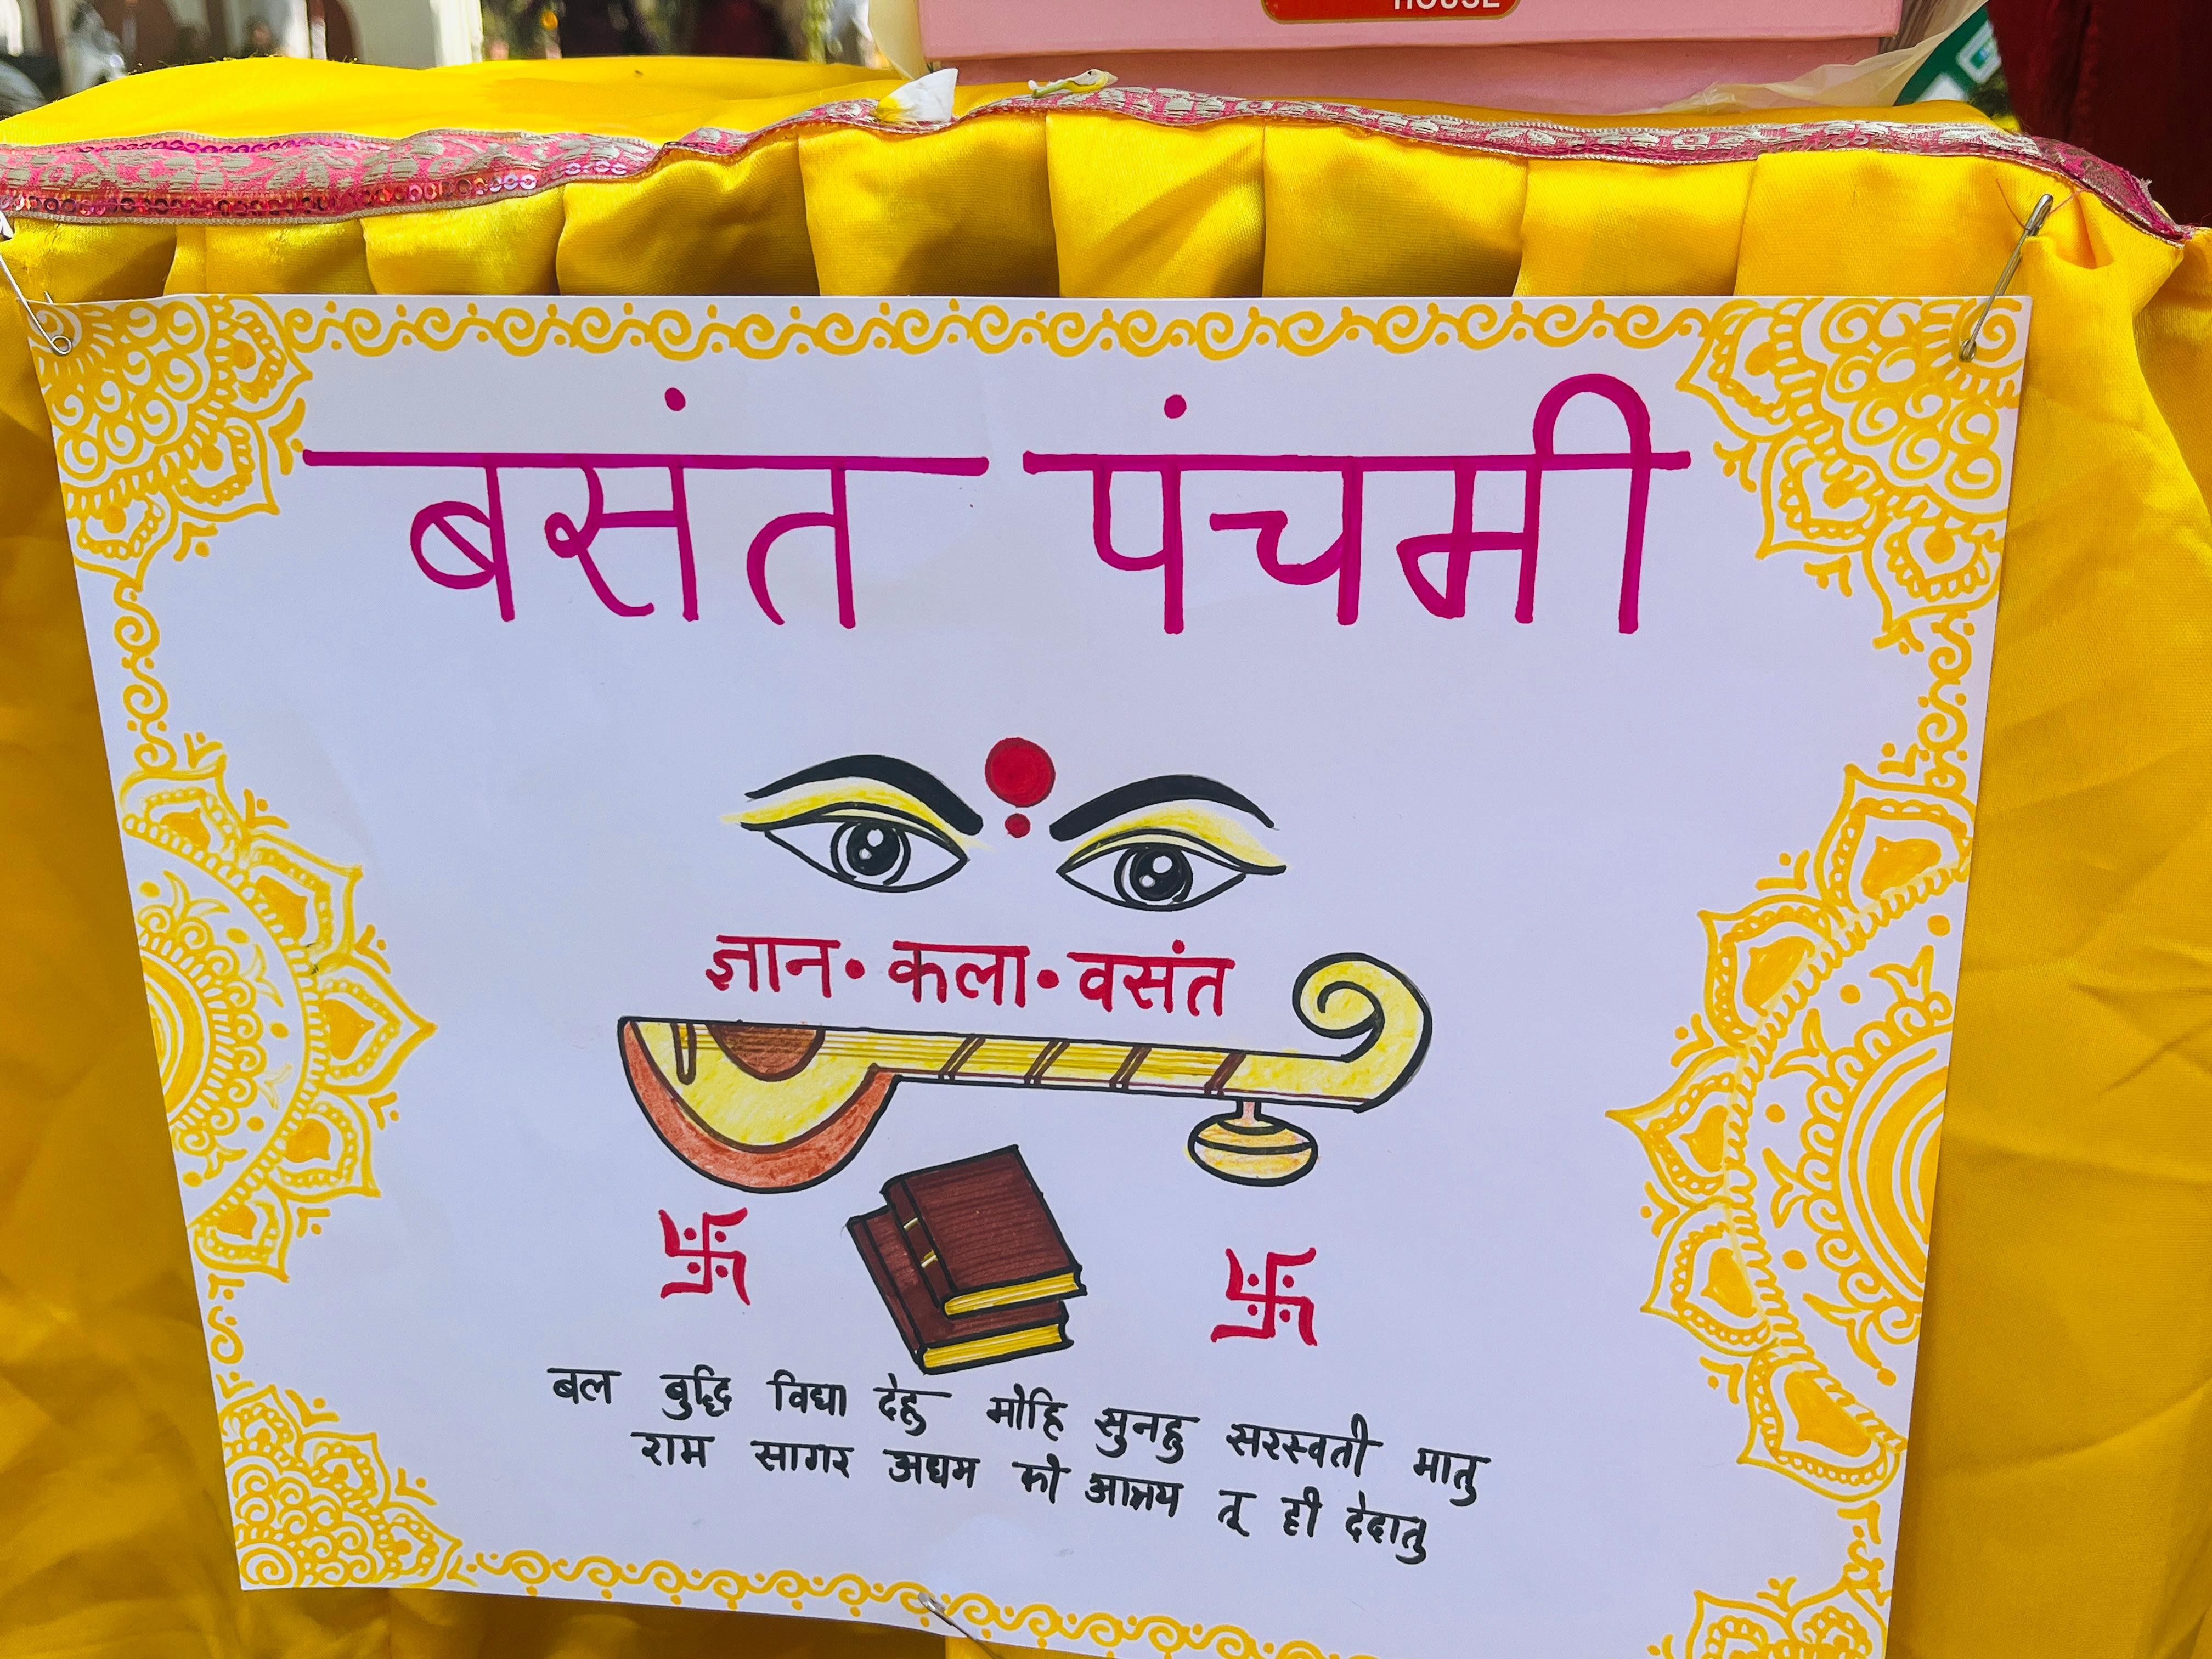 HOUSE
बसंत पंचमी
ज्ञान • कला • वसंत
बल बुद्धि विद्या देहु मोहि सुनहु सरस्वती मातु
राम सागर अधम को आश्रय तू ही देदातु